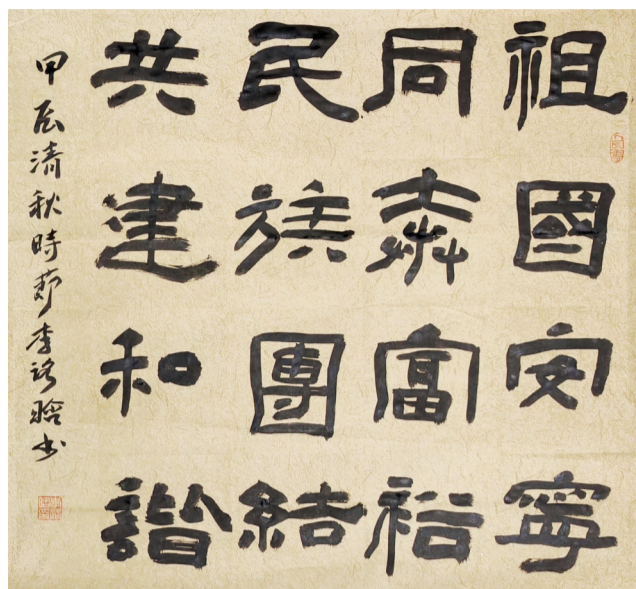 祖國安寧
同奔富裕
民族團結
共建和諧
甲辰清秋時節李晗书